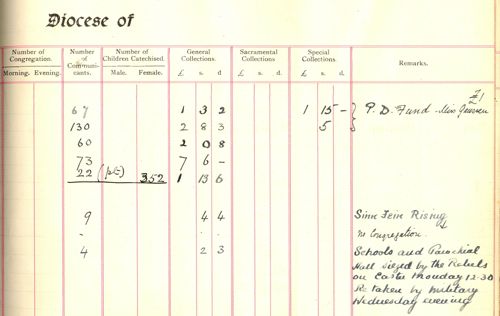 Diocese of
Number of Congregation. Number of Communicants. Number of Children Catechised. General Collections. Sacramental Collections Special Collections. Remarks.
Morning. Evening. Male. Female. £ s. d. £ s. d.
67 1 3 2 1 15 - P. D. Fund
130 2 8 3 5
60 2 0 8
73 7 6 -
22 352 1 13 6
9 4 4 Sinn Fein Rising
no Congregation.
4 2 3 Schools and Parochial
Hall siezed by the Rebels
on Easter Monday 12-30
Re-taken by Military
Wednesday evening